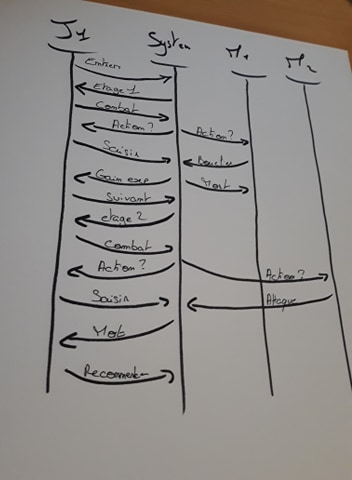 J1 System M1 M2
Entrer
Etage 1
Combat
Action? Action?
Saisir Bouclier
Gain exp Mort
Suivant
etage 2
Combat
Action? Action?
Saisir Attaque
Mort
Recommencer